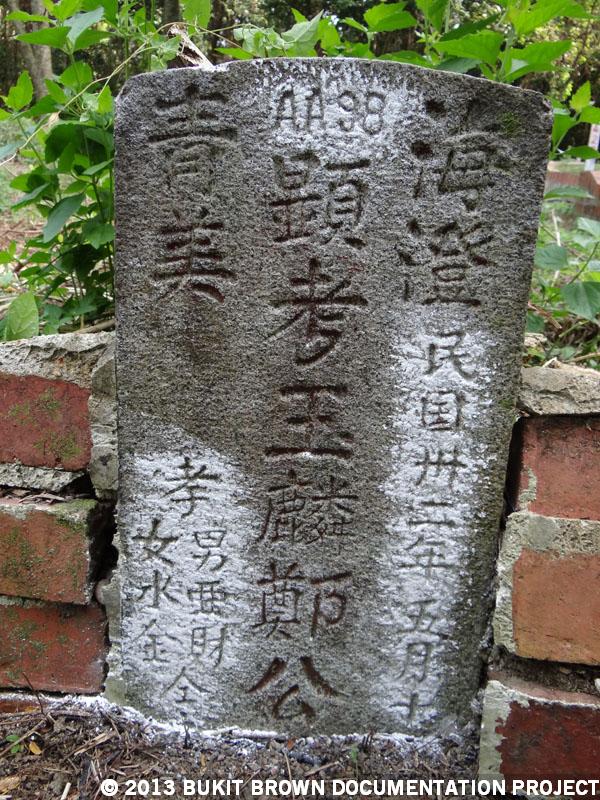 AA98
海澄
民国卅二年五月十
顕考玉麟鄭公
青美
孝
男亜財
女水金
仝
© 2013 BUKIT BROWN DOCUMENTATION PROJECT